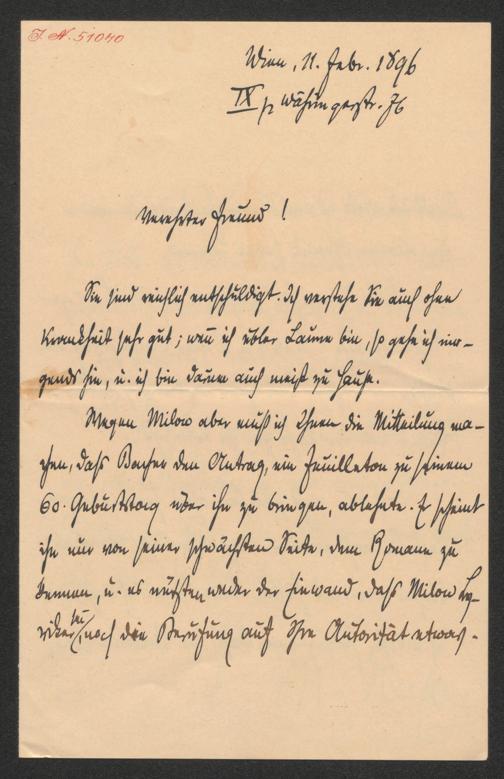 J. N. 51040
Wien, 11. Febr. 1896
IX/2 Währingerstr. 76
Verehrter Freund!
Sie sind reichlich entschuldigt. Ich verstehe Sie auch ohne
Krankheit sehr gut; wenn ich übler Laune bin, so gehe ich nir-
gends hin, u. ich bin darum auch meist zu Hause.
Wegen Milow aber muß ich Ihnen die Mitteilung ma-
chen, daß Bacher den Antrag, ein Feuilleton zu seinem
60. Geburtstag über ihn zu bringen, ablehnte. Er scheint
ihn nur von seiner schwächsten Seite, dem Romane zu
kennen, u. es nützten weder der Einwand, daß Milow Ly-
riker sei, noch die Berufung auf Ihre Autorität etwas.